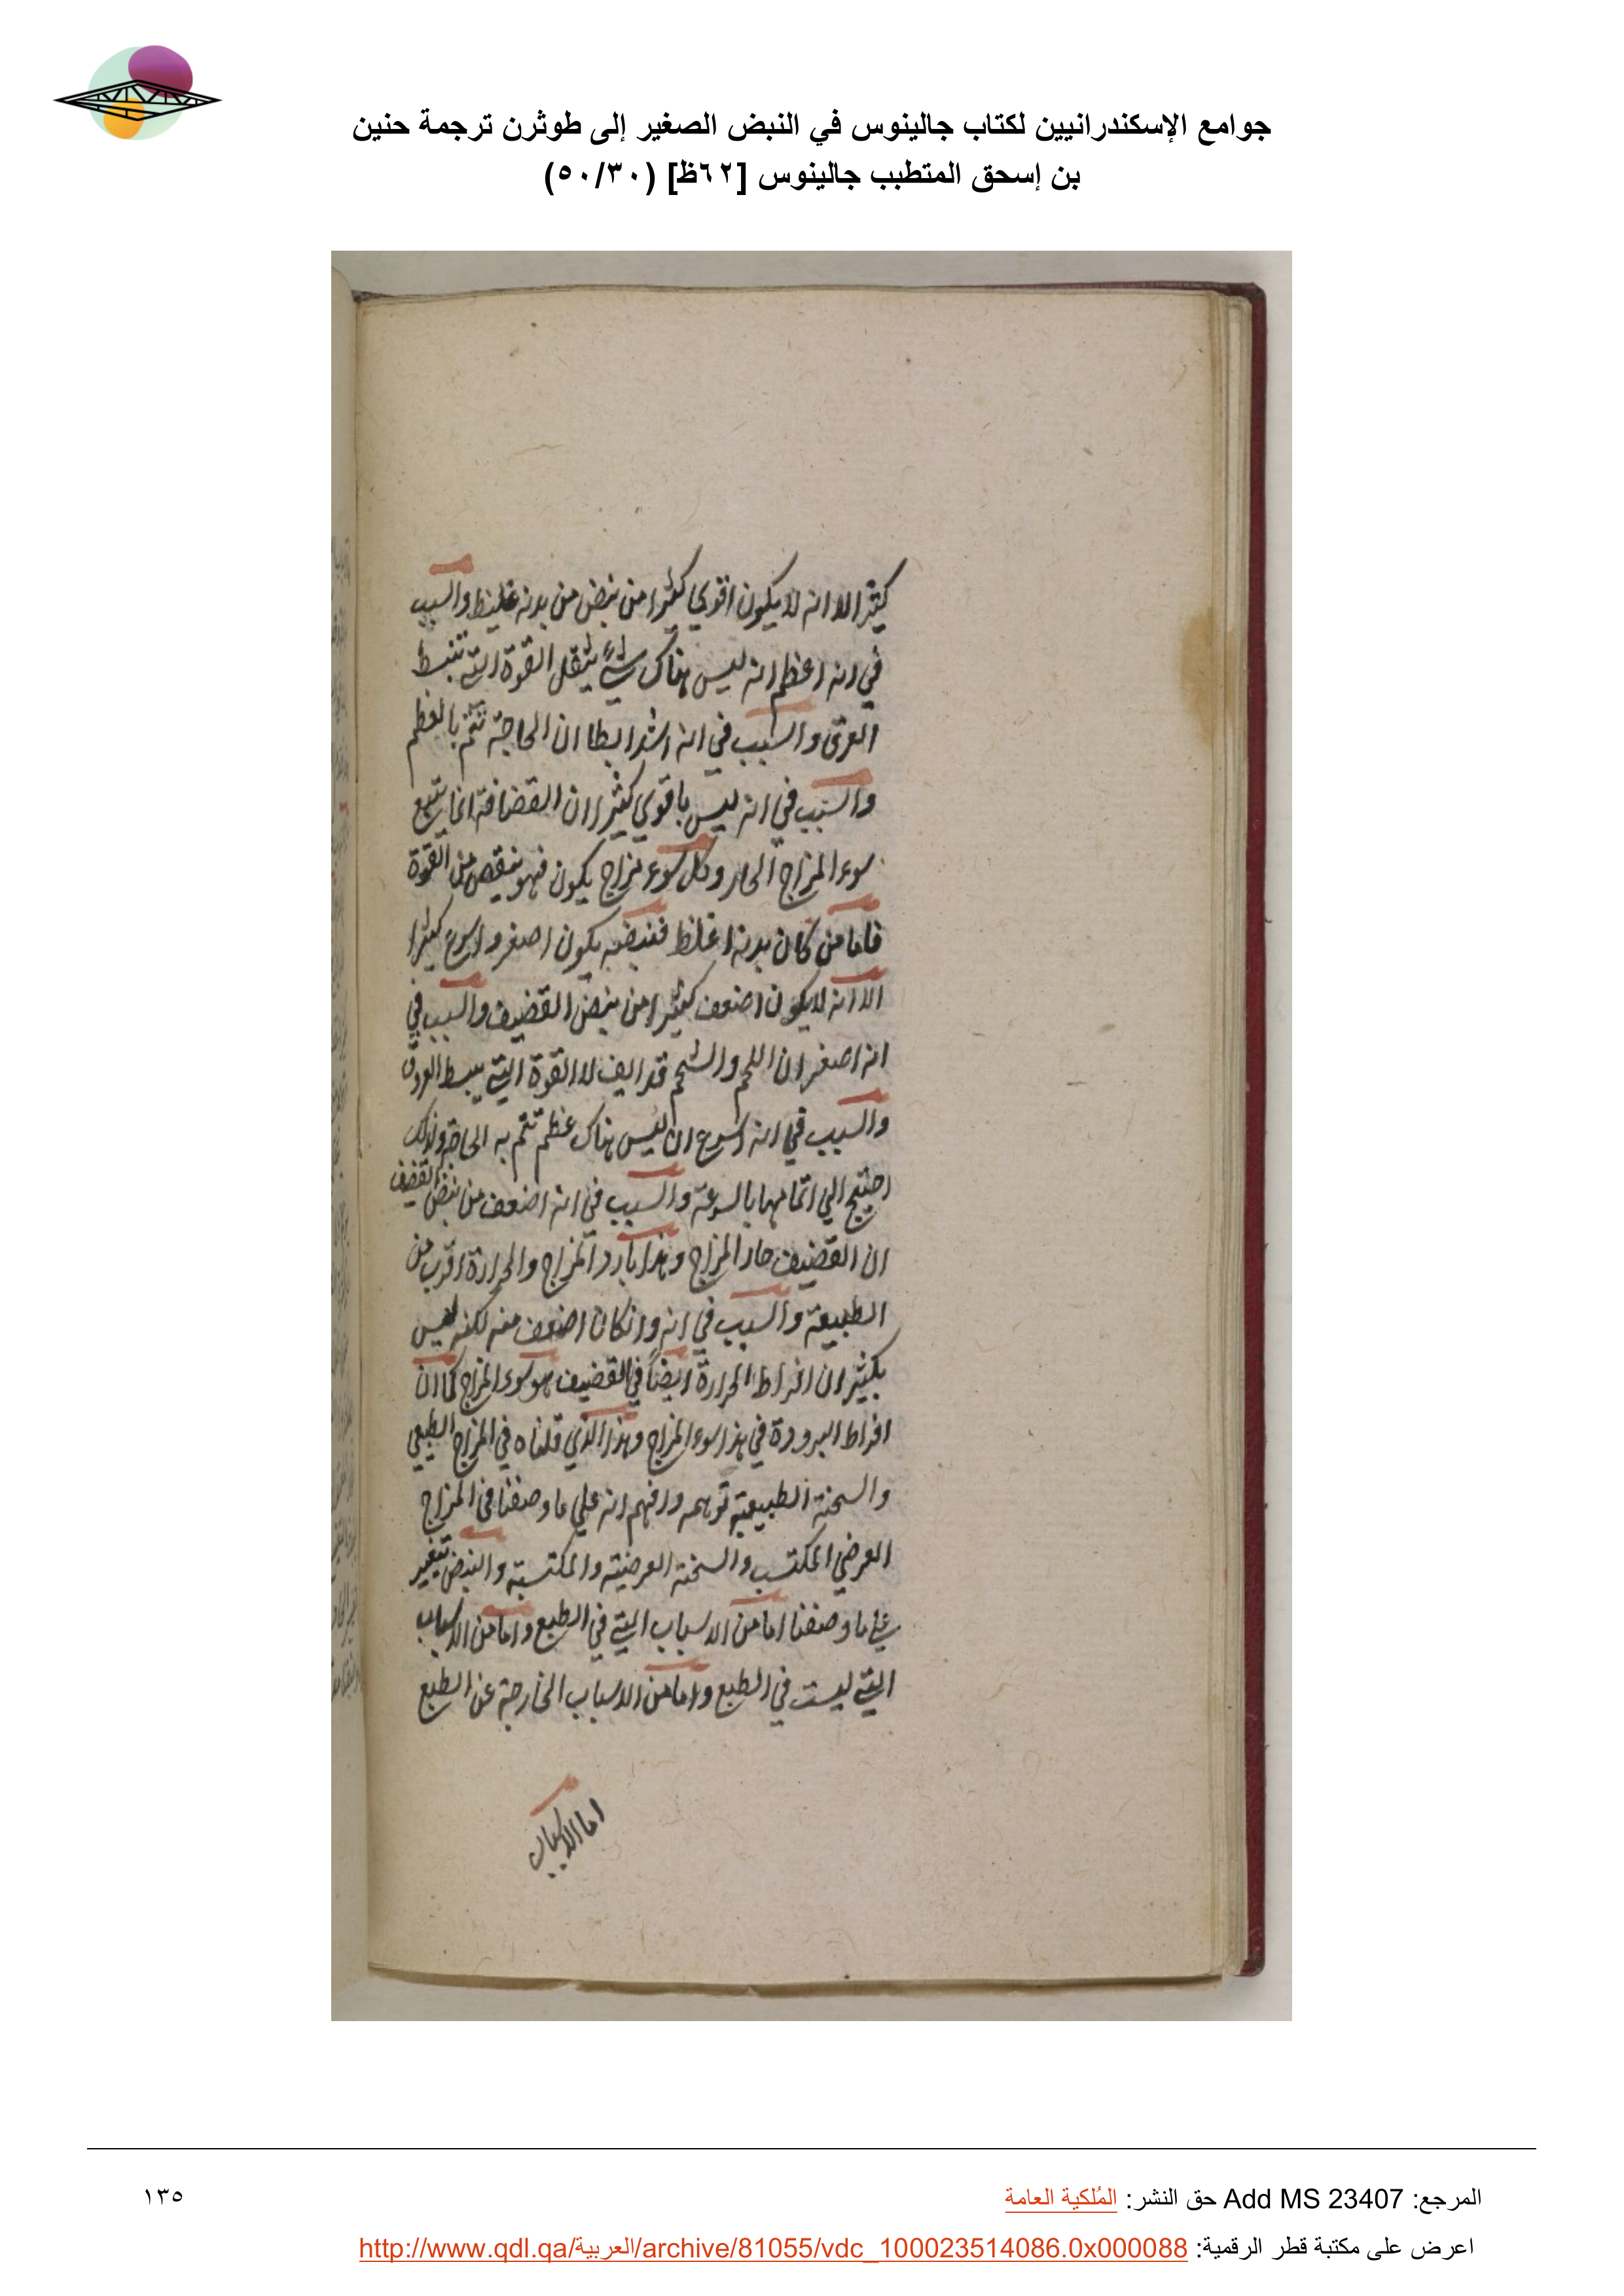 جوامع الإسكندرانيين لكتاب جالينوس في النبض الصغير إلى طوثرن ترجمة حنين
بن إسحق المتطبب جالينوس [٦٢ظ] (٥٠/٣٠)
كثيرا الا انه لا يكون اقوي كثيرا من نبض من بدنه غليظ والسبب
في انه اعظم انه ليس هناك شيء يثقل القوة التي تنبسط
العرق والسبب في انه اشد ابطا ان الحاجة تتم بالعظم
والسبب في انه ليس باقوي كثيرا ان القضافة انما يتبع
سوء المزاج الحار وكل سوء مزاج يكون فهو ينقص من القوة
فاما من كان بدنه اغلظ فنبضه يكون اصغر واسرع كثيرا
الا انه لا يكون اضعف كثيرا من نبض القضيف والسبب في
انه اصغر ان اللحم والشحم قد القوة التي يبسط العروق
والسبب في انه اسرع ان ليس هناك عظم تتم به الحاجة ولذلك
احتيج الي اتمامها بالسرعة والسبب في انه اضعف من نبض القضيف
ان القضيف حار المزاج وهذا بارد المزاج والحرارة اقرب من
الطبيعة والسبب في انه وانكان اضعف منه لكنه ليس
بكثير ان افراط الحرارة ايضاً في القضيف هو سوء المزاج كما ان
افراط البرودة في هذا سوء المزاج وهذا الذي قلناه في المزاج الطبيعي
والسحنة الطبيعية توهمه وافهم انه علي ما وصفنا في المزاج
العرضي المكتسب والسحنة العرضية والمكتسبة والنبض يتغير
علي ما وصفنا اما من الاسباب التي في الطبع واما من الاسباب
التي ليست في الطبع واما من الاسباب الخارجة عن الطبع
اما الاسباب
المرجع: Add MS 23407 حق النشر: المُلكية العامة
١٣٥
اعرض على مكتبة قطر الرقمية: http://www.qdl.qa/العربية/archive/81055/vdc_100023514086.0x000088